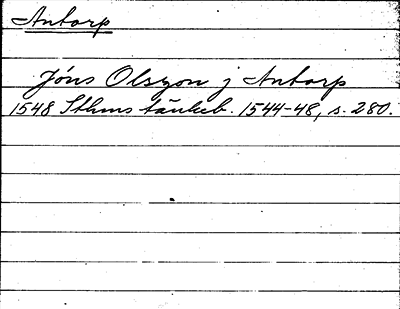 Antorp
Jóns Olsyon j Antorp
1548 Sthms tänkeb. 1544-48, s. 280.